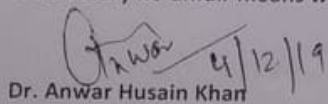 Anwar 4/12/19
Dr. Anwar Husain Khan